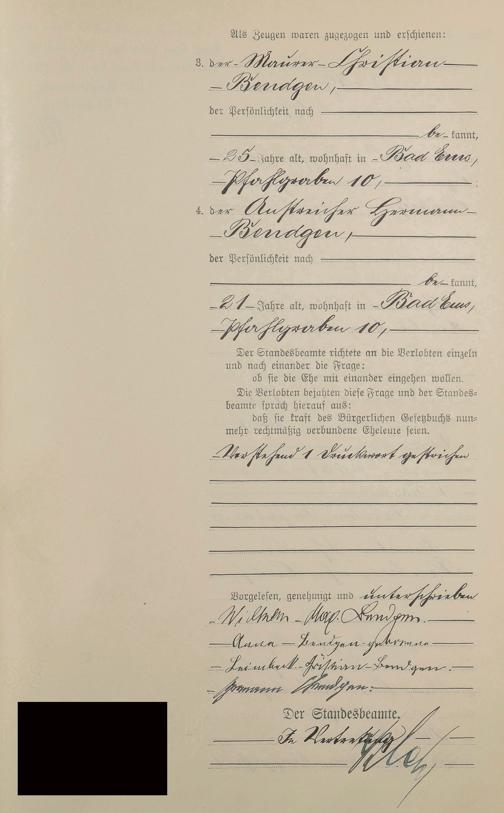 Als Zeugen waren zugezogen und erschienen:
3. der Maurer Christian
Bendgen,
der Persönlichkeit nach
be kannt,
25 Jahre alt, wohnhaft in Bad Ems,
Pfahlgraben 10,
4. der Anstreicher Hermann
Bendgen,
der Persönlichkeit nach
be kannt,
21 Jahre alt, wohnhaft in Bad Ems,
Pfahlgraben 10,
Der Standesbeamte richtete an die Verlobten einzeln
und nach einander die Frage:
ob sie die Ehe mit einander eingehen wollen.
Die Verlobten bejahten diese Frage und der Standes-
beamte sprach hierauf aus:
daß sie kraft des Bürgerlichen Gesetzbuchs nun-
mehr rechtmäßig verbundene Eheleute seien.
Vorstehend 1 Druckwort gestrichen
Vorgelesen, genehmigt und unterschrieben
Wilhelm Bendgen.
Anna Bendgen geborene
Leimbach Christian Bendgen.
Hermann Bendgen.
Der Standesbeamte.
In Vertretung